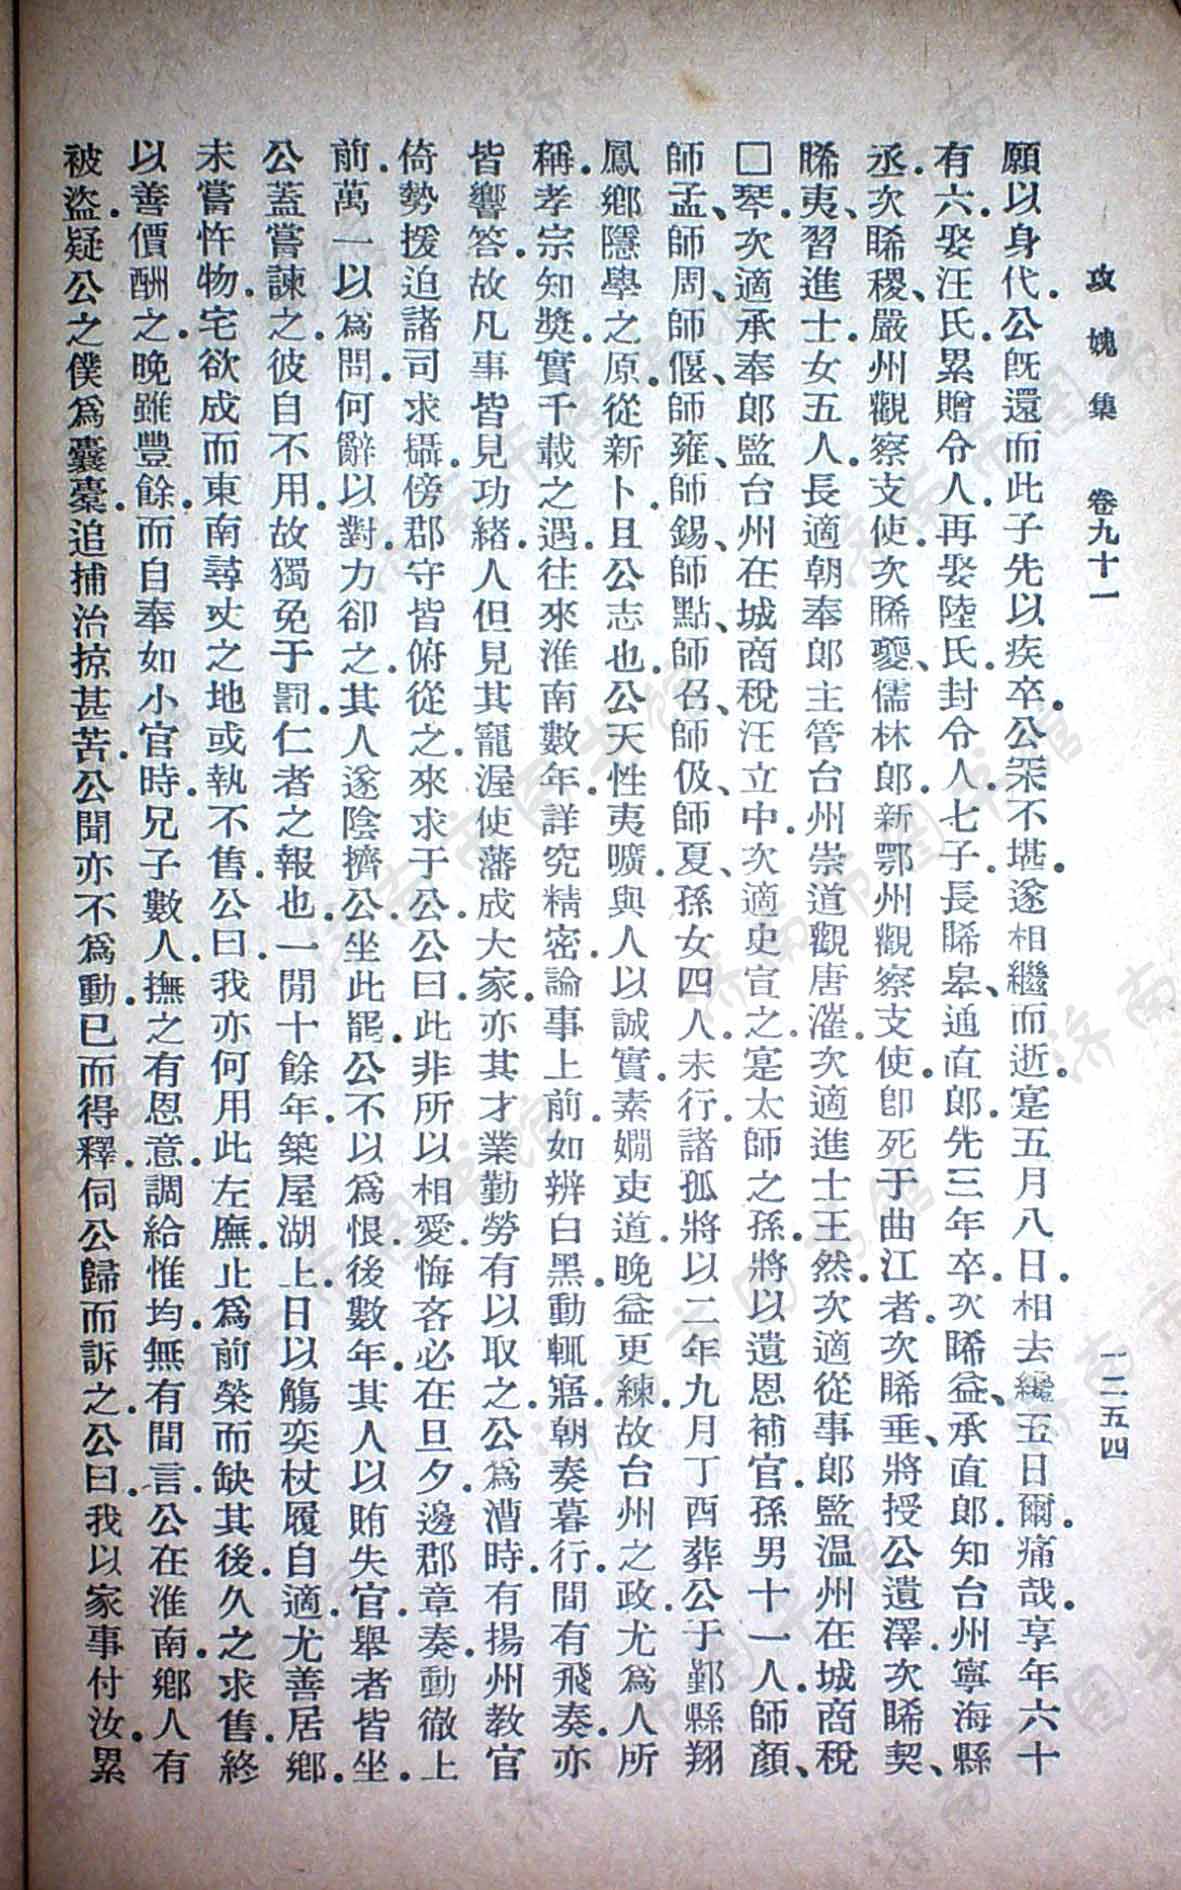 攻媿集　卷九十一　一二五四
願以身代。公旣還而此子先以疾卒。公罙不堪。遂相繼而逝。寔五月八日。相去纔五日爾。痛哉。享年六十
有六。娶汪氏。累贈令人。再娶陸氏。封令人。七子。長晞皋、通直郞。先三年卒。次晞益、承直郞。知台州寧海縣
丞。次晞稷、嚴州觀察支使。次晞夔、儒林郞。新鄂州觀察支使。卽死于曲江者。次晞垂、將授公遺澤。次晞契、
晞夷、習進士。女五人。長適朝奉郞主管台州崇道觀唐漼。次適進士王然。次適從事郞監温州在城商稅
□琴。次適承奉郞監台州在城商稅汪立中。次適史宣之。寔太師之孫。將以遺恩補官。孫男十一人。師顏、
師孟、師周、師偃、師雍、師錫、師點、師召、師伋、師夏、孫女四人。未行。諸孤將以二年九月丁酉葬公于鄞縣翔
鳳鄕隱學之原。從新卜。且公志也。公天性夷曠。與人以誠實。素嫺吏道。晚益更練。故台州之政。尤爲人所
稱。孝宗知獎。實千載之遇。往來淮南數年。詳究精密。論事上前。如辨白黑。動輒寤。朝奏暮行。間有飛奏。亦
皆響答。故凡事皆見功緒。人但見其寵渥使藩成大家。亦其才業勤勞有以取之。公爲漕時。有揚州教官
倚勢援迫諸司求攝。傍郡守皆俯從之。來求于公。公曰。此非所以相愛。悔吝必在旦夕。邊郡章奏動徹上
前。萬一以爲問。何辭以對。力卻之。其人遂陰擠公。公坐此罷。公不以爲恨。後數年。其人以賄失官。舉者皆坐。
公蓋嘗諫之。彼自不用。故獨免于罰。仁者之報也。一閒十餘年。築屋湖上。日以觴奕杖履自適。尤善居鄕。
未嘗忤物。宅欲成而東南尋丈之地或執不售。公曰。我亦何用此左廡。止爲前榮而缺其後。久之求售。終
以善價酬之。晚雖豐餘。而自奉如小官時。兄子數人。撫之有恩意。調給惟均。無有間言。公在淮南。鄕人有
被盜。疑公之僕爲囊槖。追捕治掠甚苦。公聞亦不爲動。已而得釋。伺公歸而訴之。公曰。我以家事付汝。累